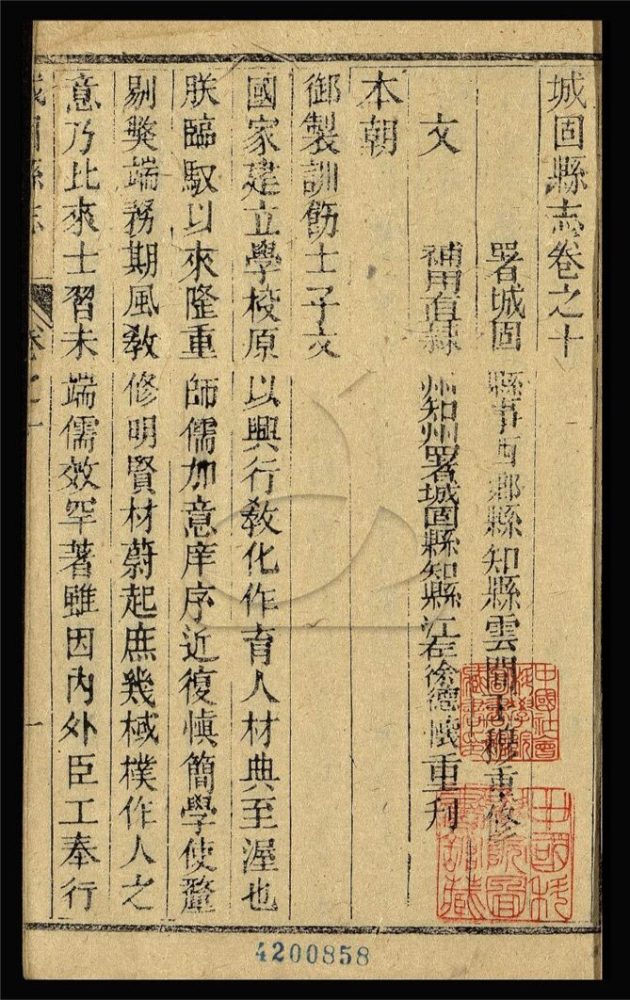 城固縣志卷之十
署城固縣事西鄉縣知縣雲間王穆重修
補用直隸州知州署城固縣知縣江左徐德懷重刊
文
本朝
御製訓飭士子文
國家建立學校原以興行教化作育人材典至渥也
朕臨馭以來隆重師儒加意庠序近復慎簡學使釐
剔獘端務期風教修明賢材蔚起庶幾棫樸作人之
意乃比來士習未端儒效罕著雖因內外臣工奉行
城固縣志
卷之十
一
4200858